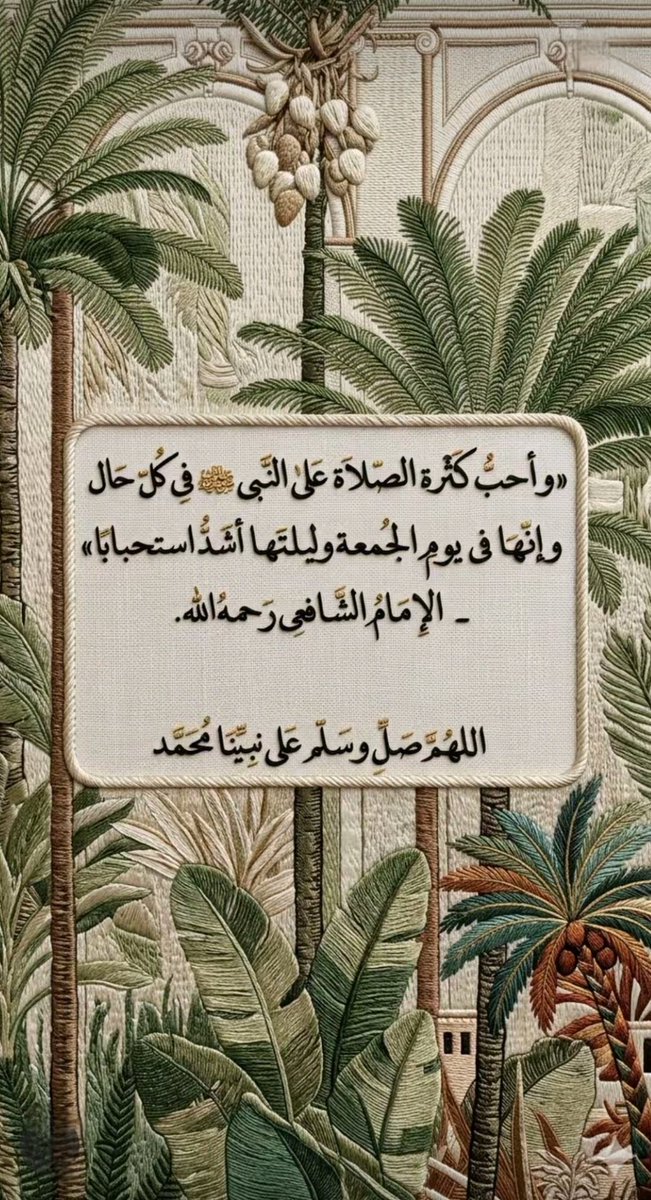 «وأحبُّ كَثْرة الصّلاَة عَلىٰ النَّبى ﷺ فِي كُلّ حَال
وإنَّهَا فى يومِ الجُمعة وليلتَها أشَدُّ استحبابًا»
ـ الإِمَامُ الشَّافعِى رَحمهُ الله.
اللهُمَّ صَلِّ وسَلّم عَلى نبِيِّنَا مُحَمَّد